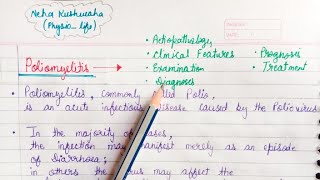 Neha Kushwaha
(Physio_life)
Poliomyelitis
• Aetiopathology
• Clinical Features
• Examination
• Diagnoses
• Prognoses
• Treatment
• Poliomyelitis, commonly called Polio,
is an acute infectious disease caused by the Poliovirus
• In the majority of cases,
the infection may manifest merely as an episode
of Diarrhoea;
in others the virus may affect the